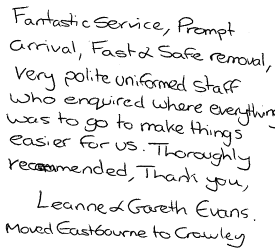 Fantastic Service, Prompt
arrival, Fast & Safe removal,
very polite uniformed staff
who enquired where everything
was to go to make things
easier for us. Thoroughly
recommended, Thank you,
Leanne & Gareth Evans.
Moved Eastbourne to Crowley